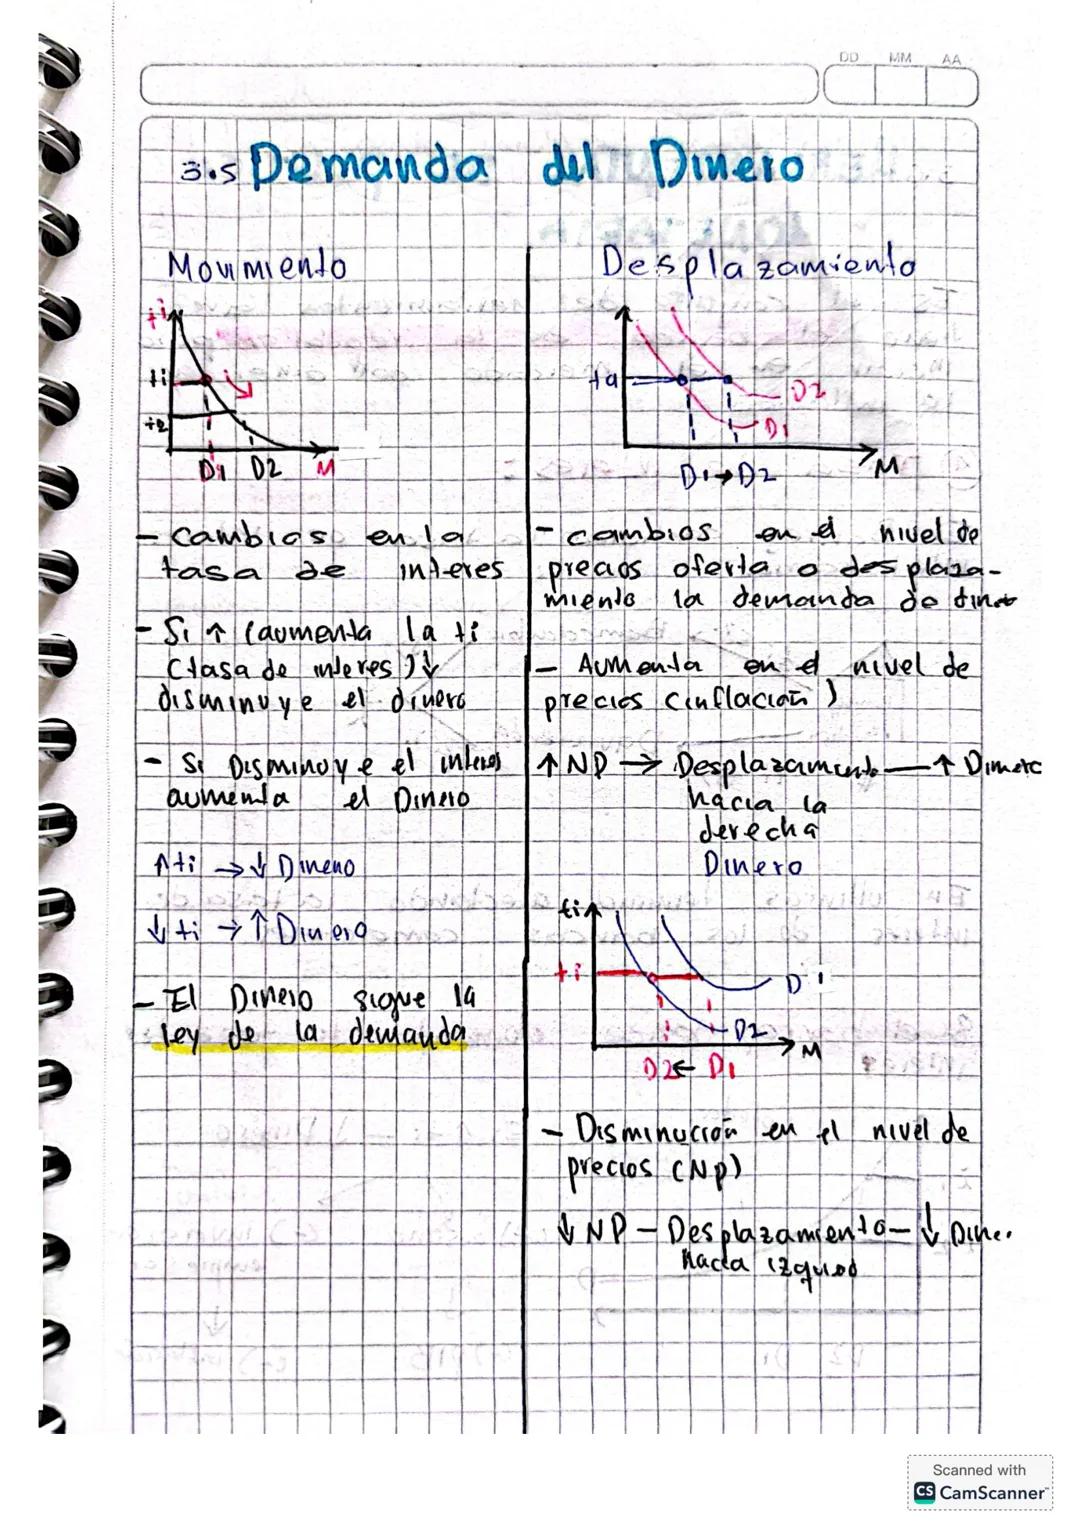 DD MM AA
3.5 Demanda del Dinero
Movimiento
ti
ti
D1 D2 M
- Cambios en la
tasa de interes
- Si ↑ (aumenta la ti
(tasa de interes) ↓
disminuye el dinero
- Si Disminuye el interes
aumenta el Dinero
↑ti → ↓ Dinero
↓ ti → ↑ Dinero
- El Dinero sigue la
ley de la demanda
Desplazamiento
D2
D1
D1 → D2
M
- cambios en el nivel de
precios oferta o desplaza-
miento la demanda de
- Aumenta en el nivel de
precios (inflación)
↑ NP → Desplazamiento — ↑
hacia la
derecha
Dinero
ti
ti
D1
D2
M
D2 ← D1
- Disminución en el nivel de
precios (Np)
↓ NP - Desplazamiento - ↓
hacia
Scanned with
CS CamScanner